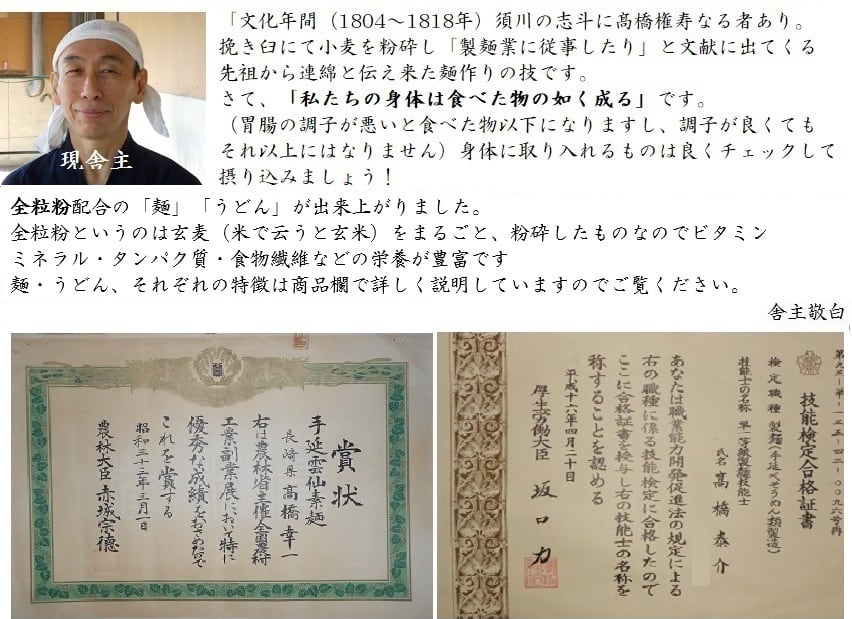 「文化年間（1804～1818年）須川の志斗に髙橋権寿なる者あり。
挽き臼にて小麦を粉砕し「製麺業に従事したり」と文献に出てくる
先祖から連綿と伝え来た麺作りの技です。
さて、「私たちの身体は食べた物の如く成る」です。
（胃腸の調子が悪いと食べた物以下になりますし、調子が良くても
それ以上にはなりません）身体に取り入れるものは良くチェックして
摂り込みましょう！
現舎主
全粒粉配合の「麺」「うどん」が出来上がりました。
全粒粉というのは玄麦（米で云うと玄米）をまるごと、粉砕したものなのでビタミン
ミネラル・タンパク質・食物繊維などの栄養が豊富です
麺・うどん、それぞれの特徴は商品欄で詳しく説明していますのでご覧ください。
舎主敬白
賞状
手延雲仙素麺
長崎県 髙橋幸一
右は農林省主催全国農村
工業副業展において特に
優秀な成績をおさめたので
これを賞する
昭和三十三年三月一日
農林大臣 赤城宗徳
技能検定合格証書
検定職種 製麺(手延べそうめん類製造)
技能士の名称 単一等級製麺技能士
氏名 髙橋泰介
あなたは職業能力開発促進法の規定による
右の職種に係る技能検定に合格したので
ここに合格証書を授与し右の技能士の名称を
称することを認める
平成十六年四月二十日
厚生労働大臣 坂口力